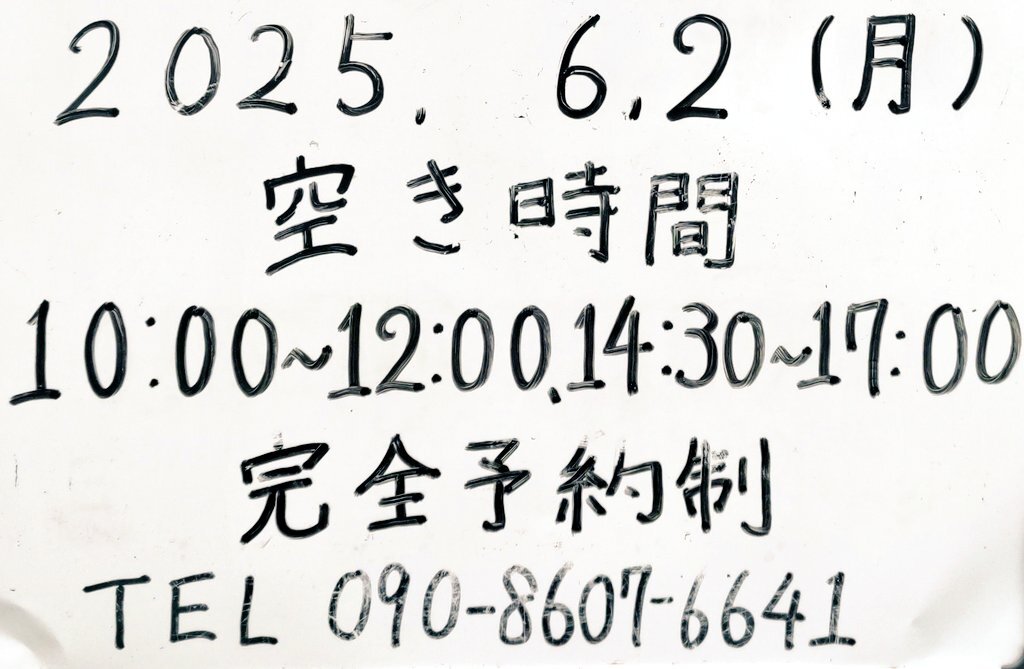 2025. 6.2 (月)
空き時間
10:00~12:00.14:30~17:00
完全予約制
TEL 090-8607-6641